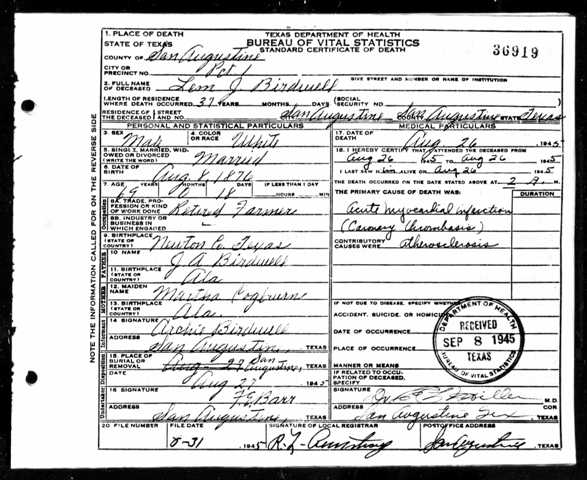 TEXAS DEPARTMENT OF HEALTH
BUREAU OF VITAL STATISTICS
STANDARD CERTIFICATE OF DEATH
36919
1. PLACE OF DEATH
STATE OF TEXAS
COUNTY OF San Augustine
CITY OR PRECINCT NO. Pct 1
GIVE STREET AND NUMBER OR NAME OF INSTITUTION
2. FULL NAME OF DECEASED Lem J. Birdwell
LENGTH OF RESIDENCE WHERE DEATH OCCURRED 37 YEARS MONTHS DAYS
SOCIAL SECURITY NO.
RESIDENCE OF THE DECEASED STREET AND NO. San Augustine San Augustine STATE Texas
PERSONAL AND STATISTICAL PARTICULARS
3. SEX Male
4. COLOR OR RACE White
5. SINGLE, MARRIED, WIDOWED OR DIVORCED (WRITE THE WORD) Married
6. DATE OF BIRTH Aug 8, 1876
7. AGE 69 YEARS MONTHS 18 DAYS IF LESS THAN 1 DAY HOURS MIN
8A. TRADE, PROFESSION OR KIND OF WORK DONE Retired Farmer
8B. INDUSTRY OR BUSINESS IN WHICH ENGAGED
9. BIRTHPLACE (STATE OR COUNTRY) Newton Co Texas
10 NAME J A Birdwell
11. BIRTHPLACE (STATE OR COUNTRY) Ala
12. MAIDEN NAME Martha Cogburn
13. BIRTHPLACE (STATE OR COUNTRY) Ala.
14 SIGNATURE Archie Birdwell
ADDRESS San Augustine, TEXAS
15. PLACE OF BURIAL OR REMOVAL San Augustine, TEXAS
DATE Aug 27 1945
16 SIGNATURE F. G. Barr
ADDRESS San Augustine, TEXAS
MEDICAL PARTICULARS
17. DATE OF DEATH Aug 26 1945
18. I HEREBY CERTIFY THAT I ATTENDED THE DECEASED FROM
Aug 26 1945 TO Aug 26 1945
I LAST SAW ALIVE ON Aug 26 1945
THE DEATH OCCURRED ON THE DATE STATED ABOVE AT 2 A. M.
THE PRIMARY CAUSE OF DEATH WAS: DURATION
Acute myocardial infarction
(Coronary thrombosis)
CONTRIBUTORY CAUSES WERE: atherosclerosis
IF NOT DUE TO DISEASE, SPECIFY WHETHER:
ACCIDENT, SUICIDE, OR HOMICIDE
DATE OF OCCURRENCE
PLACE OF OCCURRENCE
MANNER OR MEANS
IF RELATED TO OCCUPATION OF DECEASED, SPECIFY
DEPARTMENT OF HEALTH
RECEIVED
SEP 8 1945
TEXAS
BUREAU OF VITAL STATISTICS
SIGNATURE Miller M.D.
ADDRESS San Augustine Tex TEXAS
20 FILE NUMBER
FILE DATE 8-31 1945
SIGNATURE OF LOCAL REGISTRAR R. L. Armstrong
POSTOFFICE ADDRESS San Augustine TEXAS
NOTE THE INFORMATION CALLED FOR ON THE REVERSE SIDE
Occupation
FATHER
MOTHER
Informant
Undertaker
Disposition